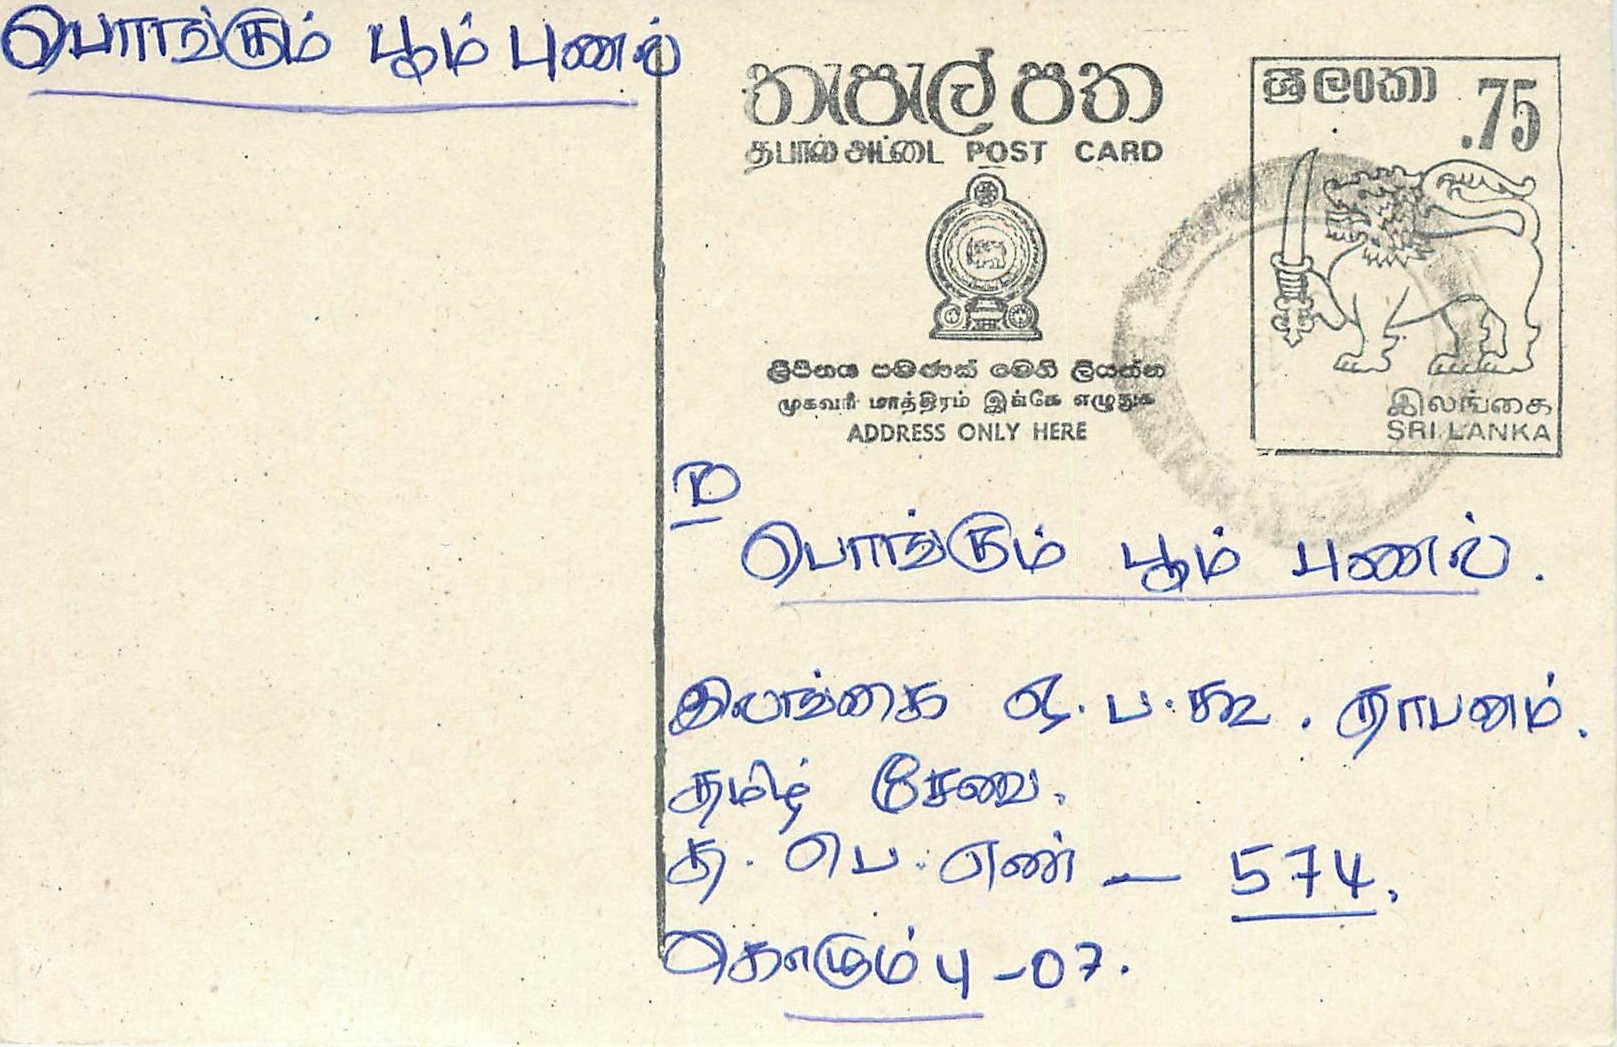 பொங்கும் பூம் புணல்
තැපැල් පත
தபால் அட்டை POST CARD
ශ්‍රී ලංකා .75
ලිපිනය පමණක් මෙහි ලියන්න
முகவரி மாத்திரம் இங்கே எழுதுக
ADDRESS ONLY HERE
இலங்கை
SRI LANKA
பொங்கும் பூம் புணல்.
இலங்கை ஒ.ப.கூ. தாபனம்.
தமிழ் சேவை.
த. பெ. எண் — 574.
கொழும்பு -07.